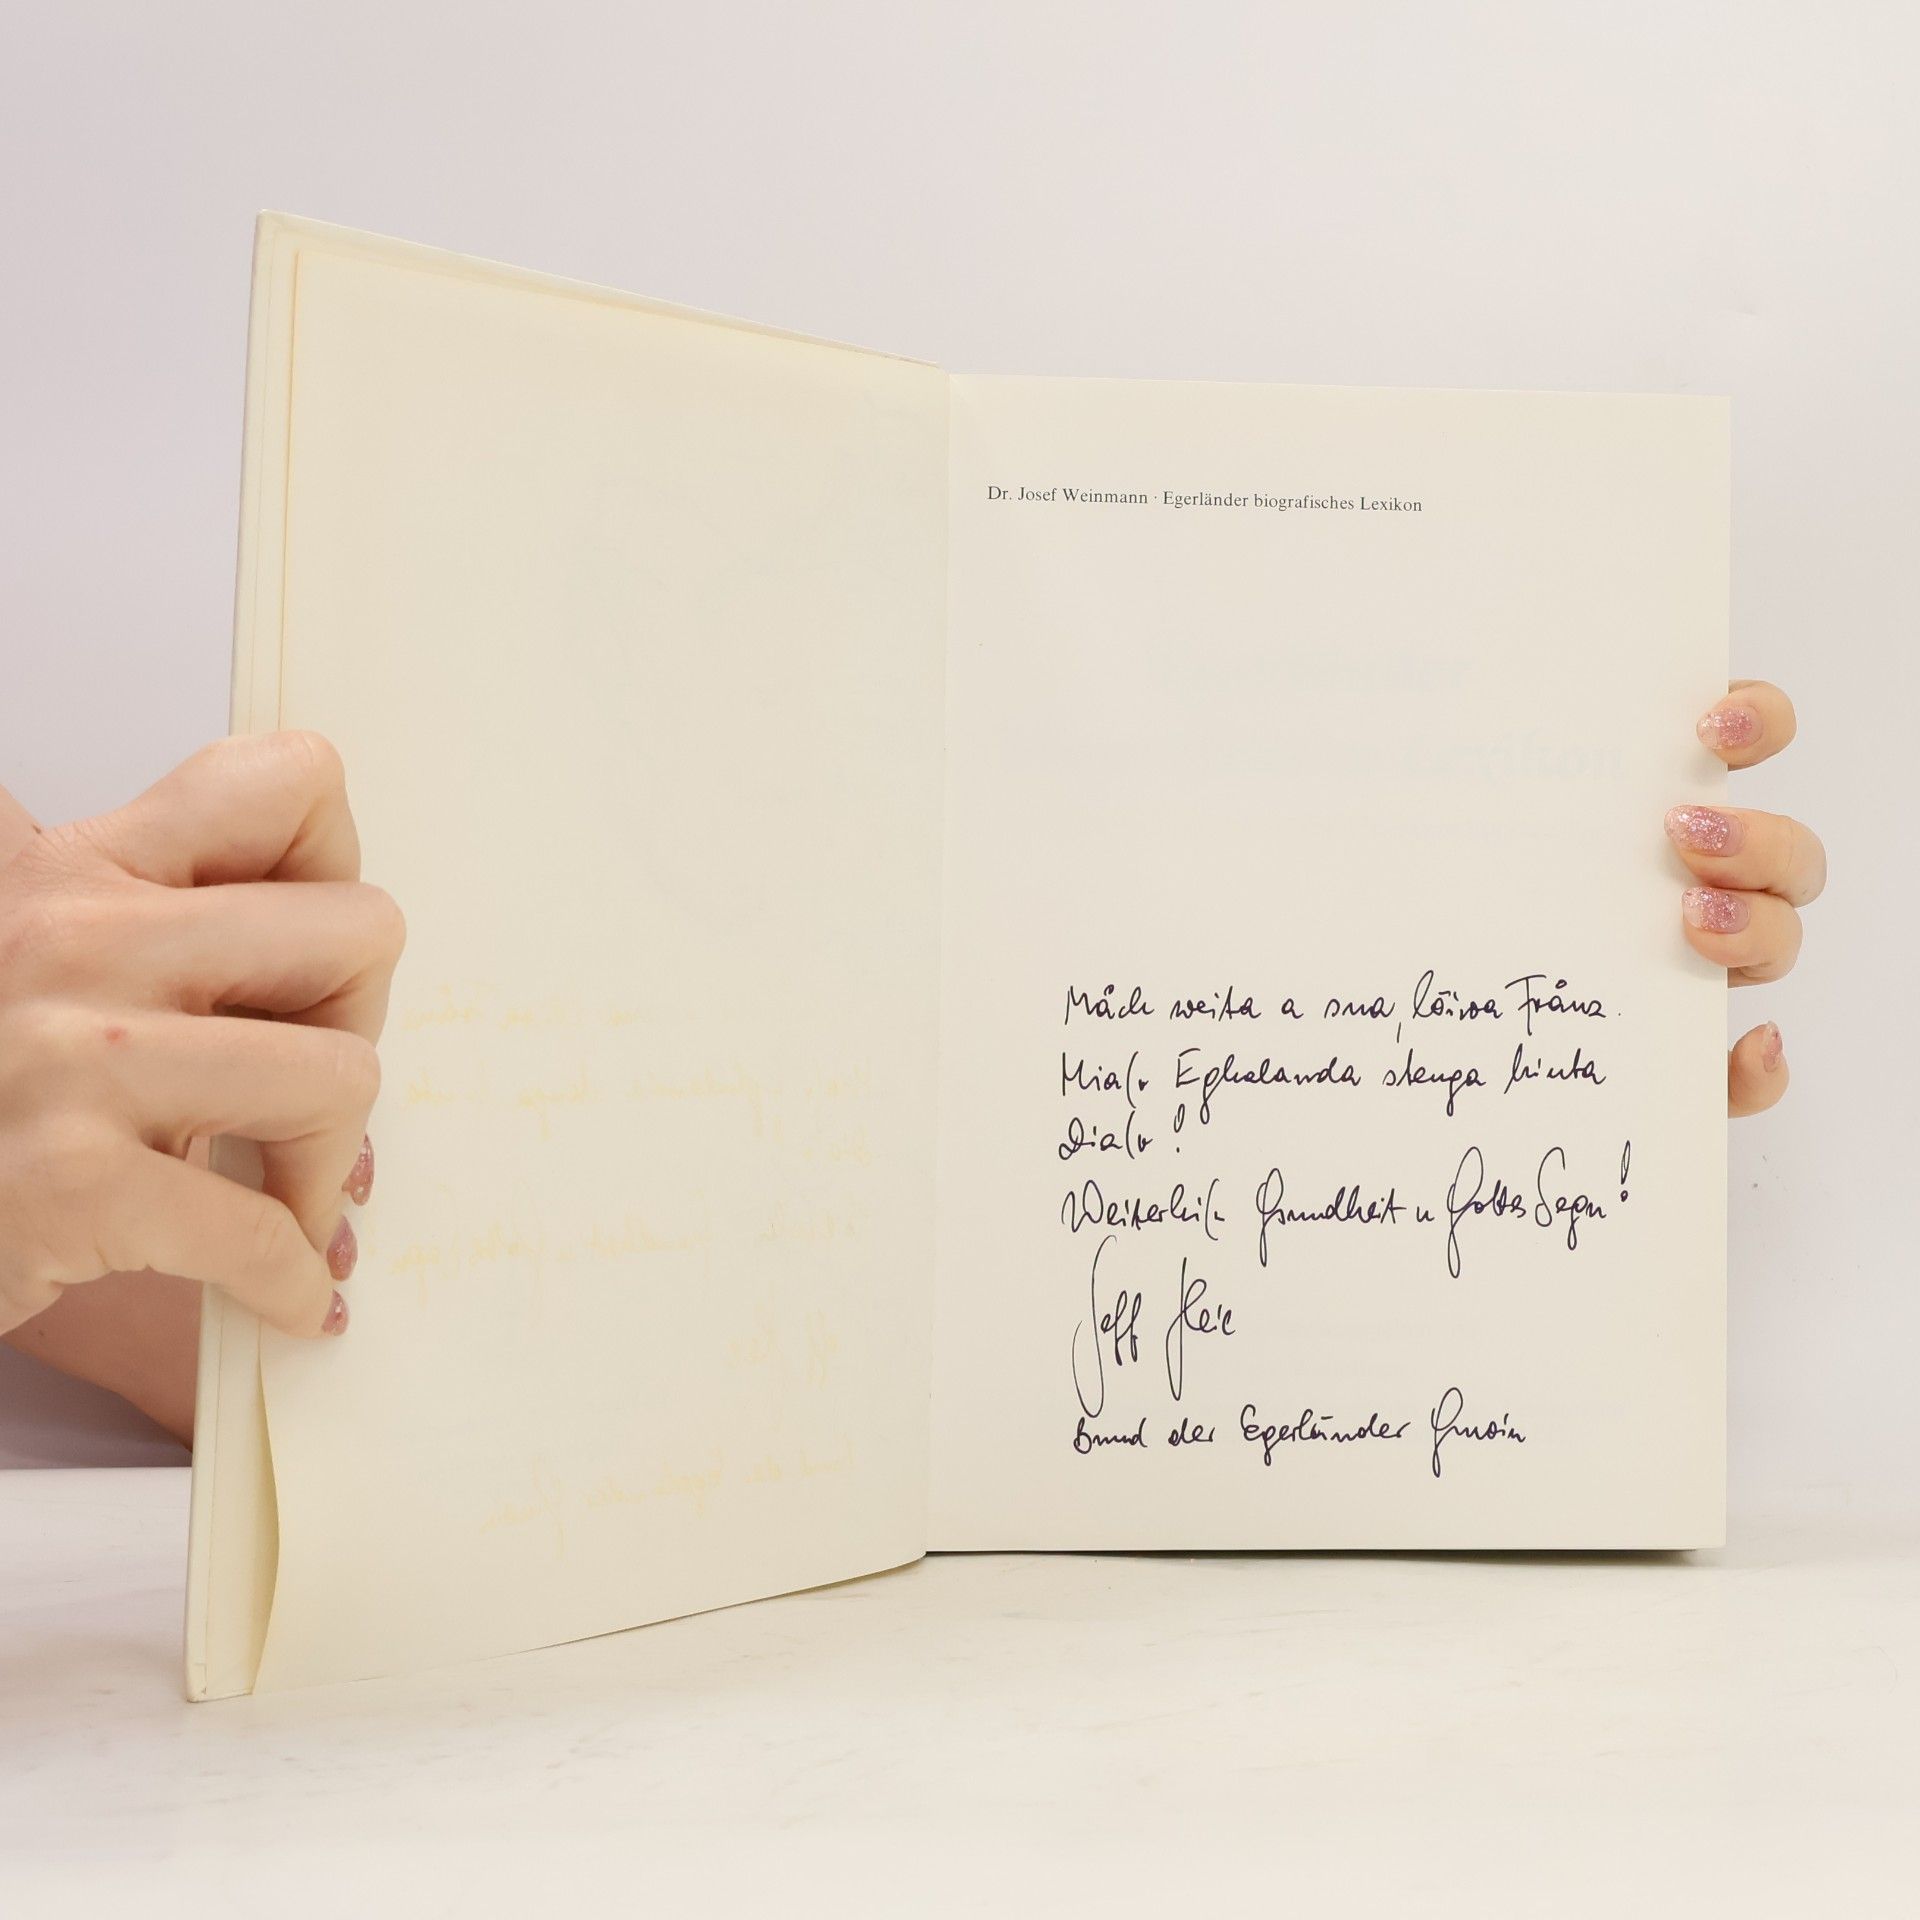 Dr. Josef Weinmann · Egerländer biografisches Lexikon
Måch weita a sua, löiwa Frånz.
Mia(r Eghalanda stenga hinta
Dia(r !
Weiterhi(n Gsundheit u Gottes Segn!
Seff Heil
Bund der Egerländer Gmoin